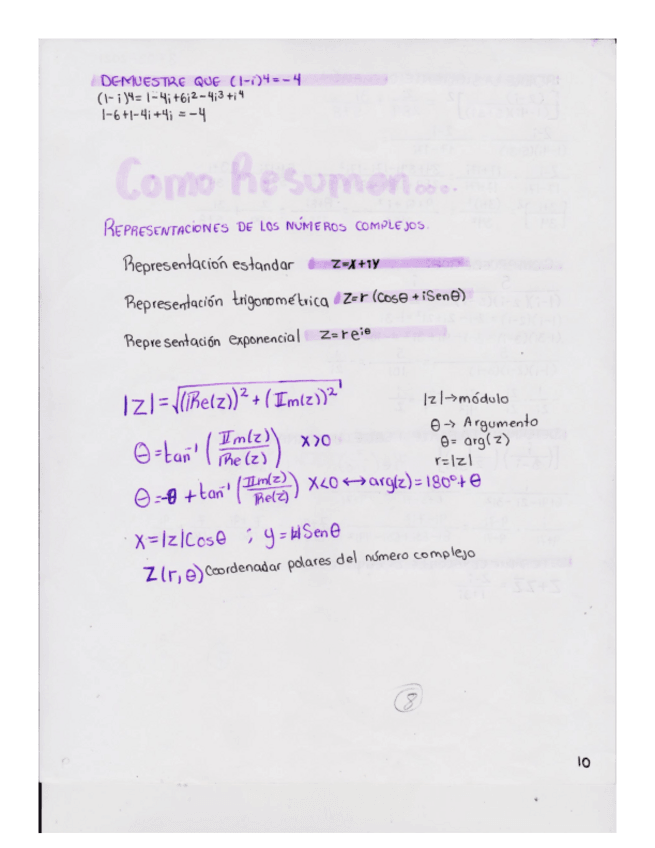 DEMUESTRE QUE (1-i)⁴ = -4
(1-i)⁴ = 1-4i+6i²-4i³+i⁴
1-6+1-4i+4i = -4
Como Resumen....
REPRESENTACIONES DE LOS NÚMEROS COMPLEJOS.
Representación estandar Z=X+iY
Representación trigonométrica Z=r (Cosθ + iSenθ)
Representación exponencial Z=re^iθ
|Z| = √((Re(z))² + (Im(z))²)
|z|→módulo
θ→ Argumento
θ=tan⁻¹ (Im(z)/Re(z)) X>0
θ= arg(z)
r=|z|
θ= + tan⁻¹ (Im(z)/Re(z)) X<0 ↔ arg(z)=180°+θ
X=|z|Cosθ ; y=|z|Senθ
Z(r,θ) Coordenadar polares del número complejo
8
10